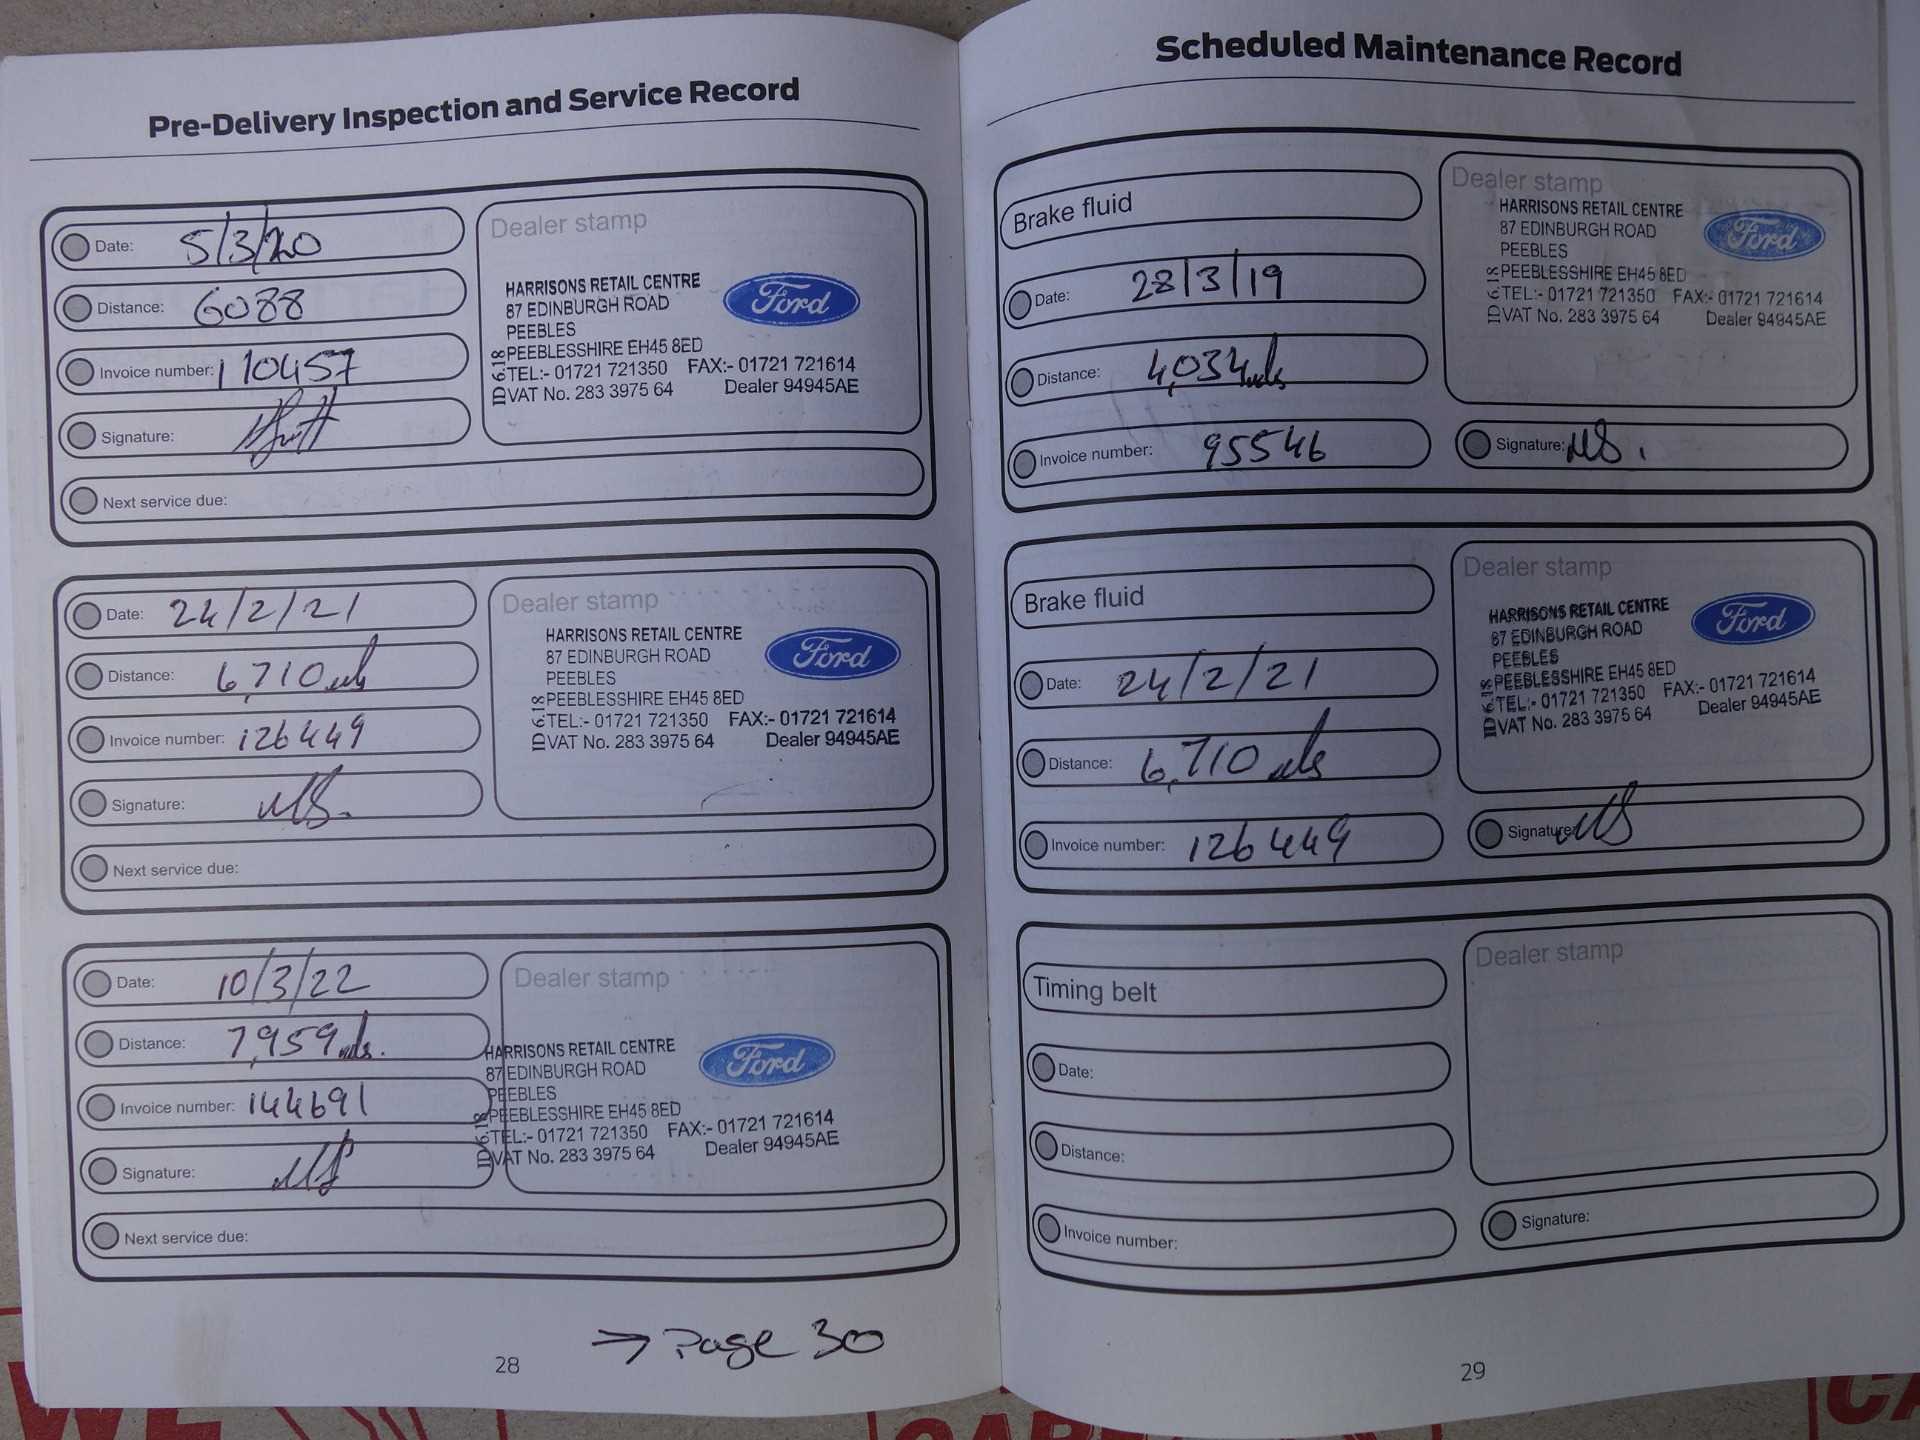 Pre-Delivery Inspection and Service Record
Date: 5/3/20
Distance: 6088
Invoice number: 110457
Signature:
Next service due:
Dealer stamp
HARRISONS RETAIL CENTRE
87 EDINBURGH ROAD
PEEBLES
PEEBLESSHIRE EH45 8ED
TEL:- 01721 721350 FAX:- 01721 721614
VAT No. 283 3975 64 Dealer 94945AE
ID 6.18
Ford
Date: 24/2/21
Distance: 6,710 mls
Invoice number: 126449
Signature: MS.
Next service due:
Dealer stamp
HARRISONS RETAIL CENTRE
87 EDINBURGH ROAD
PEEBLES
PEEBLESSHIRE EH45 8ED
TEL:- 01721 721350 FAX:- 01721 721614
VAT No. 283 3975 64 Dealer 94945AE
ID 6.18
Ford
Date: 10/3/22
Distance: 7,959 mls.
Invoice number: 144691
Signature: MS
Next service due:
Dealer stamp
HARRISONS RETAIL CENTRE
87 EDINBURGH ROAD
PEEBLES
PEEBLESSHIRE EH45 8ED
TEL:- 01721 721350 FAX:- 01721 721614
VAT No. 283 3975 64 Dealer 94945AE
ID 6.18
Ford
→ Page 30
28
Scheduled Maintenance Record
Brake fluid
Date: 28/3/19
Distance: 4,034 mls
Invoice number: 95546
Dealer stamp
HARRISONS RETAIL CENTRE
87 EDINBURGH ROAD
PEEBLES
PEEBLESSHIRE EH45 8ED
TEL:- 01721 721350 FAX:- 01721 721614
VAT No. 283 3975 64 Dealer 94945AE
ID 6.18
Ford
Signature: MS.
Brake fluid
Date: 24/2/21
Distance: 6,710 mls
Invoice number: 126449
Dealer stamp
HARRISONS RETAIL CENTRE
87 EDINBURGH ROAD
PEEBLES
PEEBLESSHIRE EH45 8ED
TEL:- 01721 721350 FAX:- 01721 721614
VAT No. 283 3975 64 Dealer 94945AE
ID 6.18
Ford
Signature: MS
Timing belt
Date:
Distance:
Invoice number:
Dealer stamp
Signature:
29
WE